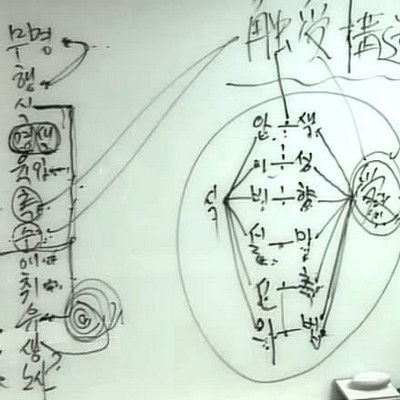 무명
행
식
명색
육입
촉
수
애
취
유
생
노사
触受構
안 색
이 성
비 향
식
설 미
신 촉
의 법